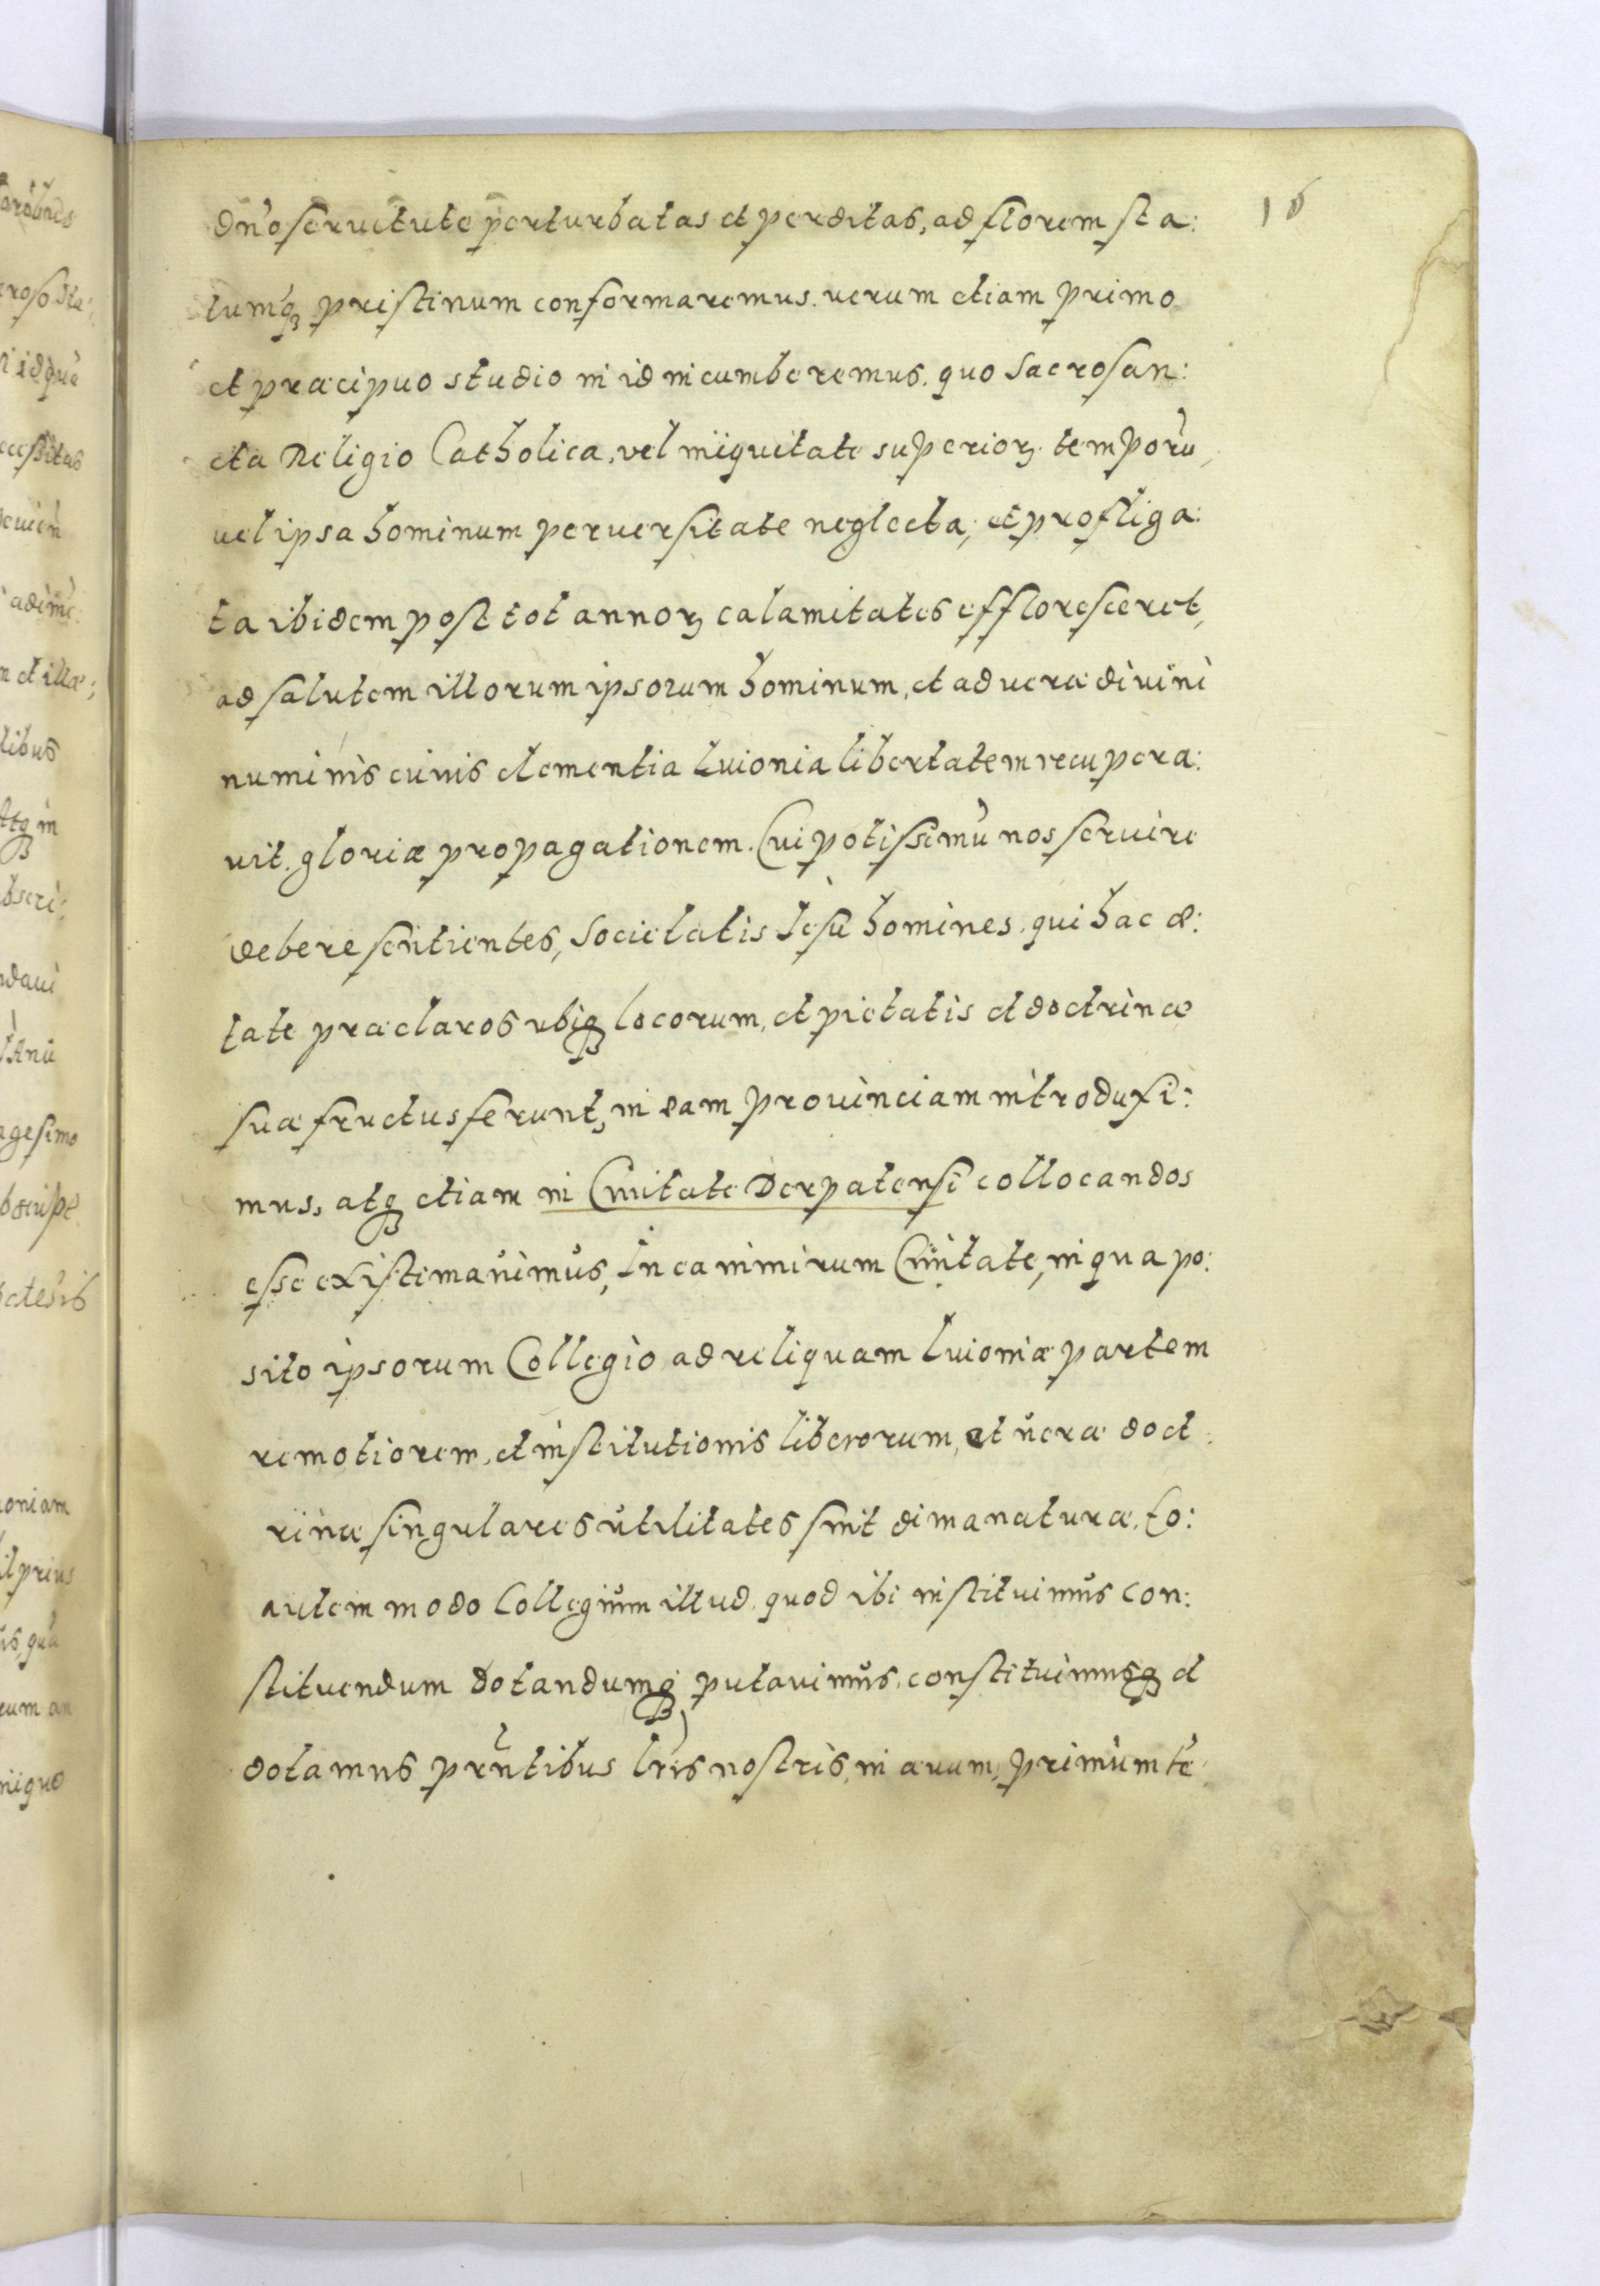 16
dn̄o seruitute perturbatas et perditas, ad florem sta:
tumq₃ pristinum conformaremus. uerum etiam primo
et præcipuo studio in id incumberemus, quo Sacrosan:
cta Religio Catholica, vel iniquitate superioꝝ temporū,
uel ipsa hominum peruersitate neglecta, et profliga:
ta ibidem post tot annoꝝ calamitates effloresceret,
ad salutem illorum ipsorum hominum, et ad ueræ diuini
numinis cuius clementia Liuonia libertatem recupera:
uit, gloriæ propagationem. Cui potissimū nos seruire
debere sentientes, Societatis Iesu homines, qui hac æ:
tate præclaros ubiq₃ locorum, et pietatis et doctrinæ
suæ fructus ferunt, in eam prouinciam introduxi:
mus, atq₃ etiam in Ciuitate Derpatensi collocandos
esse existimauimus, In ea nimirum Ciuitate, in qua po:
sito ipsorum Collegio, ad reliquam Liuoniæ partem
remotiorem, et institutionis liberorum, et ueræ doct:
rinæ singulares utilitates sint dimanaturæ. Eo:
autem modo Collegium illud, quod ibi instituimus con:
stituendum dotandumq₃ putauimus, constituimusq₃ et
dotamus prn̄tibus lr̄is nostris, in æuum, primum te